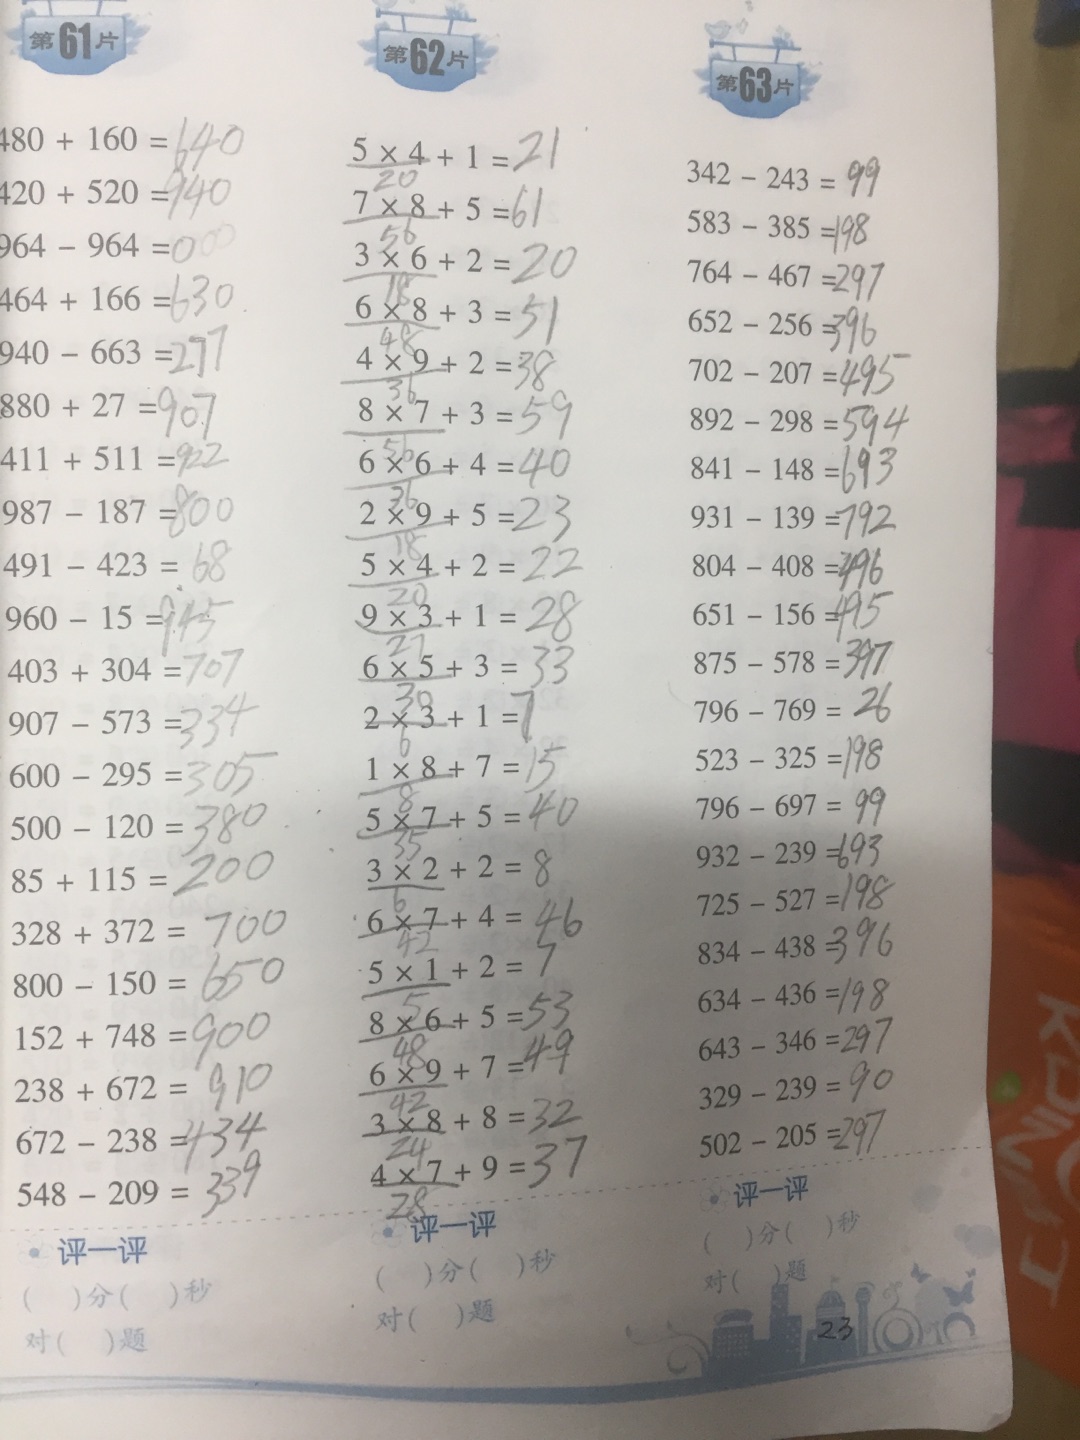 第61片
480 + 160 = 640
420 + 520 = 940
964 - 964 = 0
464 + 166 = 630
940 - 663 = 277
880 + 27 = 907
411 + 511 = 922
987 - 187 = 800
491 - 423 = 68
960 - 15 = 945
403 + 304 = 707
907 - 573 = 334
600 - 295 = 305
500 - 120 = 380
85 + 115 = 200
328 + 372 = 700
800 - 150 = 650
152 + 748 = 900
238 + 672 = 910
672 - 238 = 434
548 - 209 = 339
评一评
( )分( )秒
对( )题
第62片
5 × 4 + 1 = 21
20
7 × 8 + 5 = 61
56
3 × 6 + 2 = 20
18
6 × 8 + 3 = 51
48
4 × 9 + 2 = 38
36
8 × 7 + 3 = 59
56
6 × 6 + 4 = 40
36
2 × 9 + 5 = 23
18
5 × 4 + 2 = 22
20
9 × 3 + 1 = 28
27
6 × 5 + 3 = 33
30
2 × 3 + 1 = 7
6
1 × 8 + 7 = 15
8
5 × 7 + 5 = 40
35
3 × 2 + 2 = 8
6
6 × 7 + 4 = 46
42
5 × 1 + 2 = 7
5
8 × 6 + 5 = 53
48
6 × 9 + 7 = 49
42
3 × 8 + 8 = 32
24
4 × 7 + 9 = 37
28
评一评
( )分( )秒
对( )题
第63片
342 - 243 = 99
583 - 385 = 198
764 - 467 = 297
652 - 256 = 396
702 - 207 = 495
892 - 298 = 594
841 - 148 = 693
931 - 139 = 792
804 - 408 = 396
651 - 156 = 495
875 - 578 = 397
796 - 769 = 26
523 - 325 = 198
796 - 697 = 99
932 - 239 = 693
725 - 527 = 198
834 - 438 = 396
634 - 436 = 198
643 - 346 = 297
329 - 239 = 90
502 - 205 = 297
评一评
( )分( )秒
对( )题
23